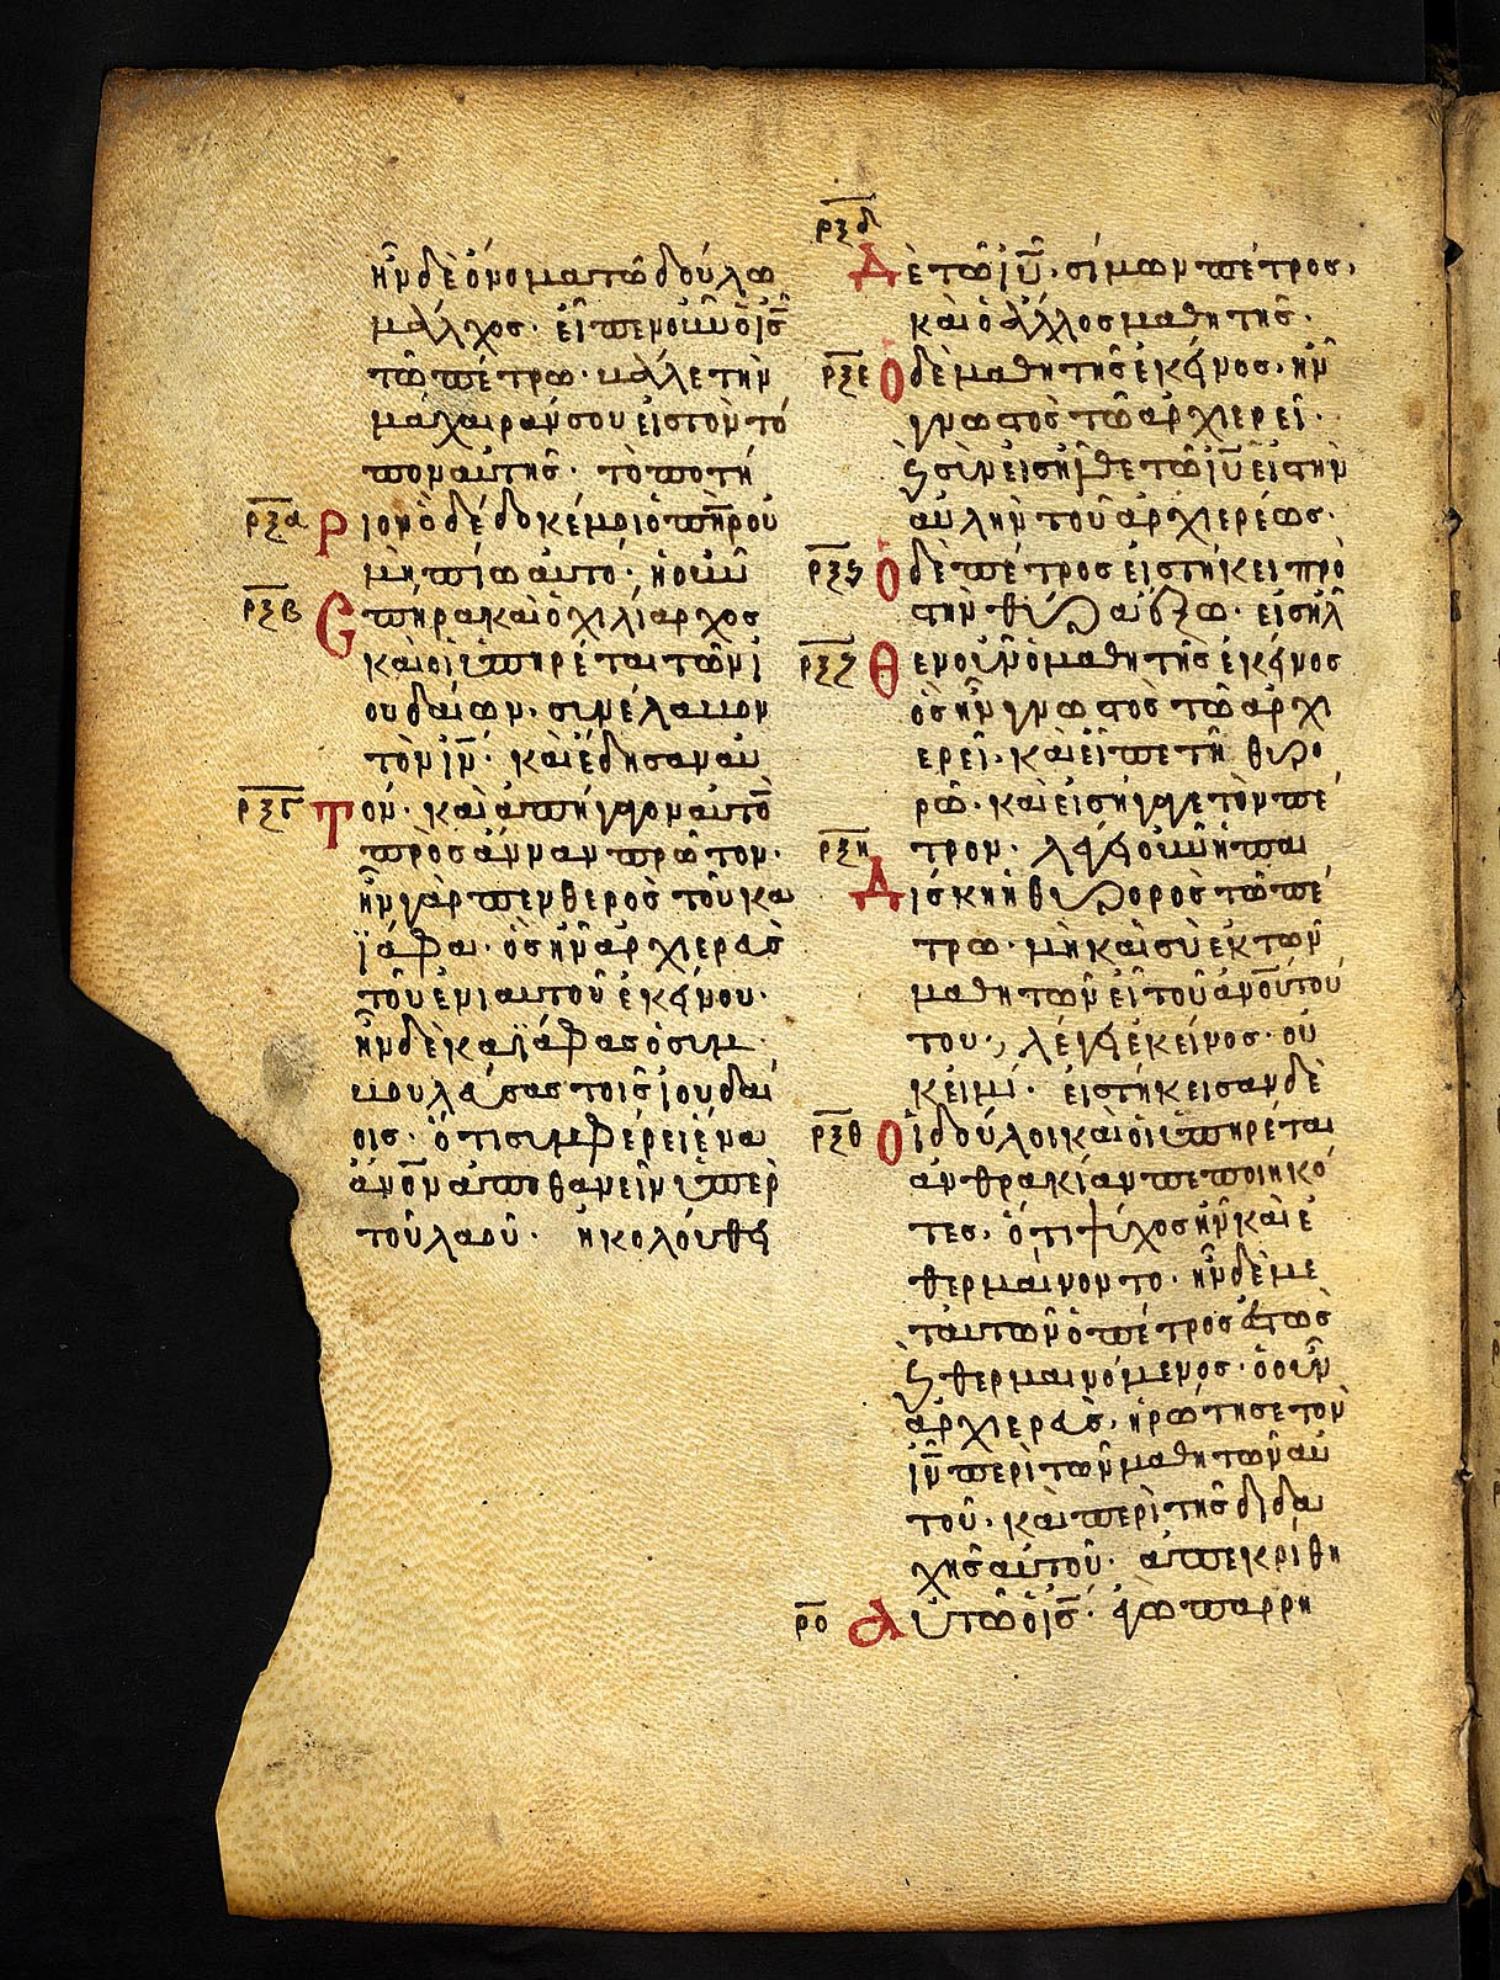 ἦν δὲ ὄνομα τῶ δούλω
μάλχος· εἶπεν οὖν ὁ ις
τῶ πέτρω· βάλε τὴν
μάχαιράν σου εἰς τὸν τό
πον αὐτῆς· τὸ ποτή
ρξα Ριον ὃ δέδοκέ μοι ὁ πηρ οὐ
μὴ πίω αὐτό; ἡ οὖν
ρξβ Cπῆρα καὶ ὁ χιλίαρχος
καὶ οἱ ὑπηρέται τῶν ἰ
ουδαίων· συνέλαβον
τὸν ιν· καὶ ἔδησαν αὐ
ρξγ Τόν· καὶ ἀπήγαγον αὐτὸ
πρὸς ἄνναν πρῶτον·
ἦν γὰρ πενθερὸς τοῦ κα
ϊάφα· ὃς ἦν ἀρχιερεὺς
τοῦ ἐνιαυτοῦ ἐκείνου·
ἦν δὲ καϊάφας ὁ συμ
βουλεύσας τοῖς ἰουδαί
οις· ὅτι συμφέρει ἕνα
ἀνον ἀποθανεῖν ὑπὲρ
τοῦ λαοῦ· ἠκολούθει
ρξδ
Δὲ τῶ ιυ· σίμων πέτρος,
καὶ ὁ ἄλλος μαθητής·
ρξε Ὁ δὲ μαθητὴς ἐκεῖνος, ἦν
γνωστὸς τῶ ἀρχιερεῖ·
ϗ συνεισῆλθε τῶ ιυ εἰς τὴν
αὐλὴν τοῦ ἀρχιερέως·
ρξϛ Ὁ δὲ πέτρος εἱστήκει πρὸ
στὴν θύρα ἔξω· εἰσῆλ
ρξζ Θεν οὖν ὁ μαθητὴς ἐκεῖνος
ὃς ἦν γνωστὸς τῶ ἀρχι
ερεῖ· καὶ εἶπε τῆ θυρο
ρῶ· καὶ εἰσήγαγε τὸν πέ
ρξη τρον· λέγει οὖν ἡ παι
Δίσκη ἡ θυρορὸς τῶ πέ
τρω· μὴ καὶ σὺ ἐκ τῶν
μαθητῶν εἶ τοῦ ἀνου τού
του; λέγει ἐκεῖνος· οὐ
κ εἰμί· εἱστήκεισαν δὲ
ρξθ Οἱ δοῦλοι καὶ οἱ ὑπηρέται
ἀνθρακίαν πεποιηκό
τες, ὅτι ψύχος ἦν καὶ ἐ
θερμαίνοντο· ἦν δὲ με
τ αὐτῶν ὁ πέτρος ἑστὼς
ϗ θερμαινόμενος· ὁ οὖν
ἀρχιερεὺς, ἠρώτησε τὸν
ιν περὶ τῶν μαθητῶν αὐ
τοῦ, καὶ περὶ τῆς διδα
χῆς αὐτοῦ· ἀπεκρίθη
ρο Αὐτῶ ὁ ις· ἐγὼ παρρη